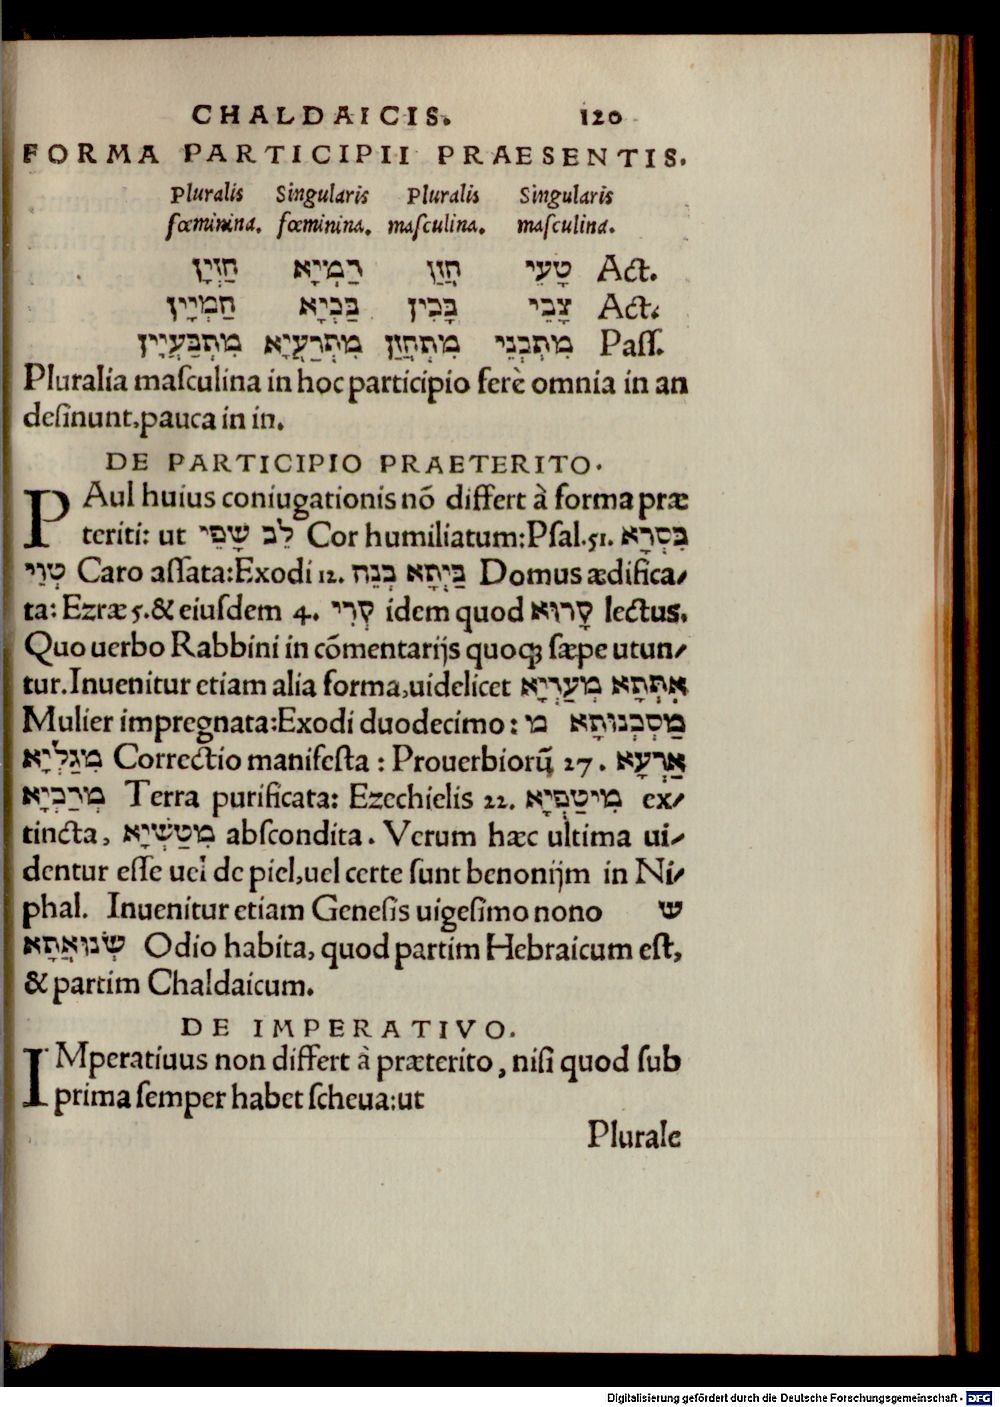 CHALDAICIS. 120
FORMA PARTICIPII PRAESENTIS.
Pluralis Singularis Pluralis Singularis
fœminina. fœminina. maſculina. maſculina.
חַזְיָן רַמְיָא חֲזַן טָעֵי Act.
חַמְיָין בַּכְיָא בָּכִין צָבֵי Act.
מִתְבַּעְיָין מִתְרַעֲיָא מִתְחֲזַן מִתְבְּנֵי Paſſ.
Pluralia maſculina in hoc participio ferè omnia in an
deſinunt, pauca in in.
DE PARTICIPIO PRAETERITO.
PAul huius coniugationis nō differt à forma præ
teriti: ut לֵב שָׁפֵי Cor humiliatum: Pſal. 51. בִּסְרָא
טְוֵי Caro aſſata: Exodi 12. בַּיְתָא בְּנֵה Domus ædifica/
ta: Ezræ 5. & eiuſdem 4. קְרִי idem quod קָרוּא lectus.
Quo uerbo Rabbini in cōmentarijs quoqꝫ ſæpe utun/
tur. Inuenitur etiam alia forma, uidelicet אִתְּתָא מְעַרְיָא
Mulier impregnata: Exodi duodecimo: מַסְכְּנוּתָא מ
מִגַלְיָא Correctio manifeſta: Prouerbiorū 27. אַרְעָא
מְרַבְיָא Terra purificata: Ezechielis 22. מִיטַפְיָא ex/
tincta, מִטַשְׁיָא abſcondita. Verum hæc ultima ui/
dentur eſſe uel de piel, uel certe ſunt benonijm in Ni/
phal. Inuenitur etiam Geneſis uigeſimo nono ש
שְׂנוּאֲתָא Odio habita, quod partim Hebraicum eſt,
& partim Chaldaicum.
DE IMPERATIVO.
IMperatiuus non differt à præterito, niſi quod ſub
prima ſemper habet ſcheua: ut
Plurale
Digitalisierung gefördert durch die Deutsche Forschungsgemeinschaft - DFG